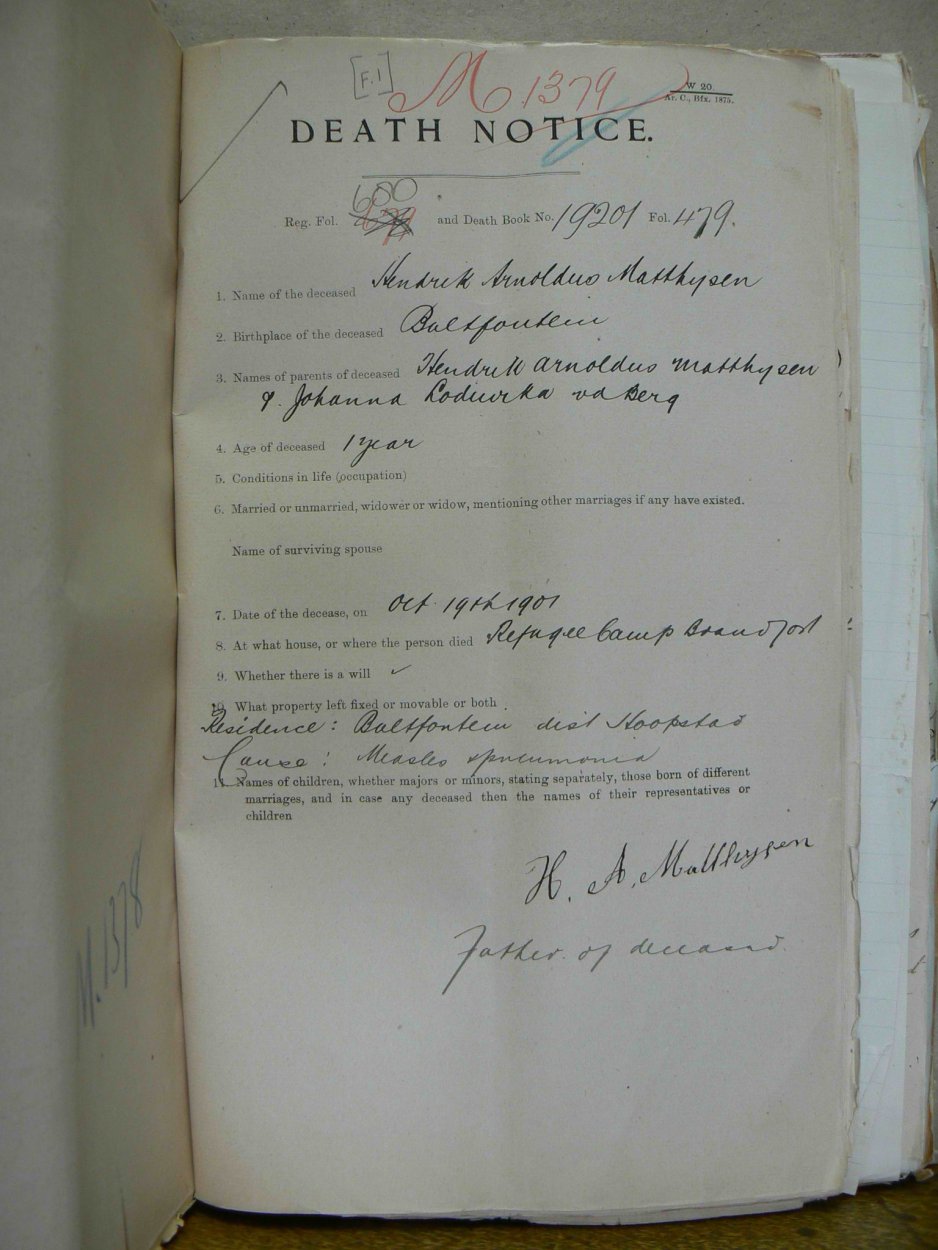 [F.1] M.1379
W 20.
Ar. C., Bfx. 1875.
DEATH NOTICE.
Reg. Fol. 680 and Death Book No. 19201 Fol. 479.
1. Name of the deceased Hendrik Arnoldus Matthysen
2. Birthplace of the deceased Bultfontein
3. Names of parents of deceased Hendrik Arnoldus Matthysen
& Johanna Lodiwika vd Berg
4. Age of deceased 1 year
5. Conditions in life (occupation)
6. Married or unmarried, widower or widow, mentioning other marriages if any have existed.
Name of surviving spouse
7. Date of the decease, on Oct 19th 1901
8. At what house, or where the person died Refugee Camp Brandfort
9. Whether there is a will
10. What property left fixed or movable or both
Residence: Bultfontein dist Hoopstad
Cause: Measles & pneumonia
11. Names of children, whether majors or minors, stating separately, those born of different
marriages, and in case any deceased then the names of their representatives or
children
H. A. Matthysen
Father of deceased.
M.1378